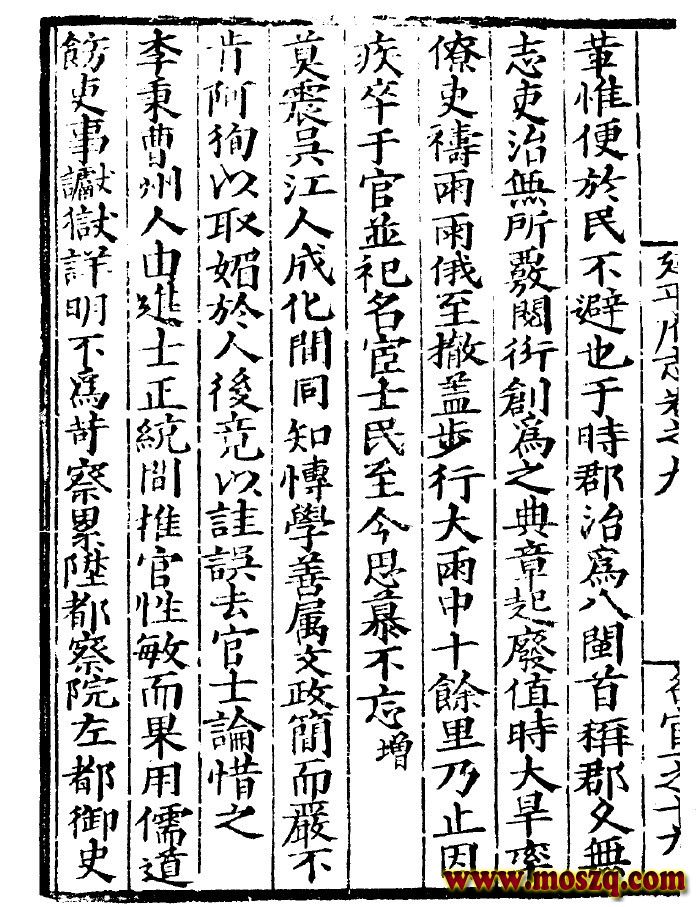 延平府志卷之九
革惟便於民不避也于時郡治爲八閩首稱郡久無
志吏治無所發閱術創爲之典章起廢值時大旱率
僚吏禱雨雨俄至撤蓋步行大雨中十餘里乃止因
疾卒于官並祀名宦士民至今思慕不忘增
莫震吳江人成化間同知愽學善属文政簡而嚴不
肯阿狥以取媚於人後竟以詿誤去官士論惜之
李秉曹州人由進士正統間推官性敏而果用儒道
飭吏事讞獄詳明不爲苛察累陞都察院左都御史
www.moszq.com